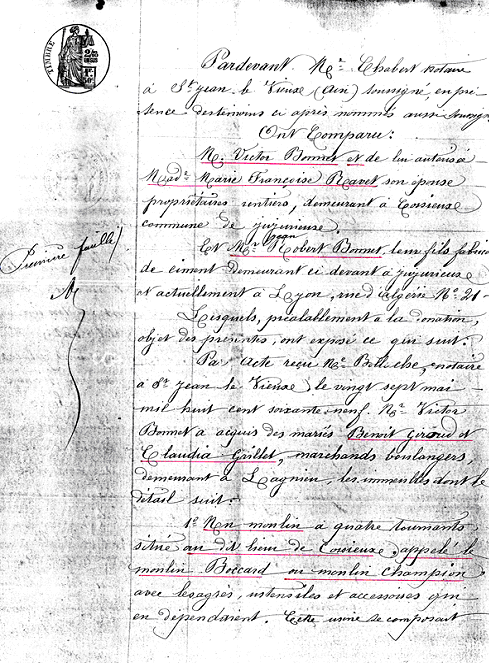 TIMBRE
Pardevant Me Chabert notaire
à St jean le Vieux (Ain) soussigné, en pré
sence des temoins ci après nommés aussi soussignés
Ont Comparu:
M. Victor Bonnet et de lui autorisée
Made Marie Françoise Ravet son épouse
propriétaires rentiers, demeurant à Cossieux
commune de jujurieux.
Et Mr jean Robert Bonnet, leur fils fabric
de ciment demeurant ci devant à jujurieux
et actuellement à Lyon, rue d'algérie No 21-
Première feuille
Lesquels, préalablement à la donation,
objet des présentes, ont exposé ce qui suit:
Par acte reçu Me notaire
à St jean le Vieux le vingt sept mai
mil huit cent soixante-neuf. Mr Victor
Bonnet a acquis des mariés Benoit Giroud et
Claudia Grillet, marchands boulangers,
demeurant à Lagnieu, les immeubles dont le
détail suit:
1o Un moulin à quatre tournants
situé au dit lieu de Cossieux, appelé le
moulin Boccard ou moulin Champion
avec les agrès, ustensiles et accessoires qui
en dépendaient. Cette usine se composait